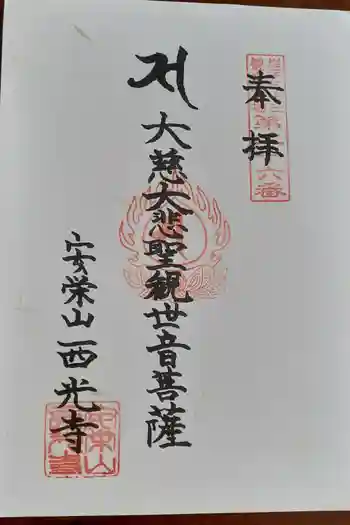 奉拝
大慈大悲聖観世音菩薩
安栄山西光寺